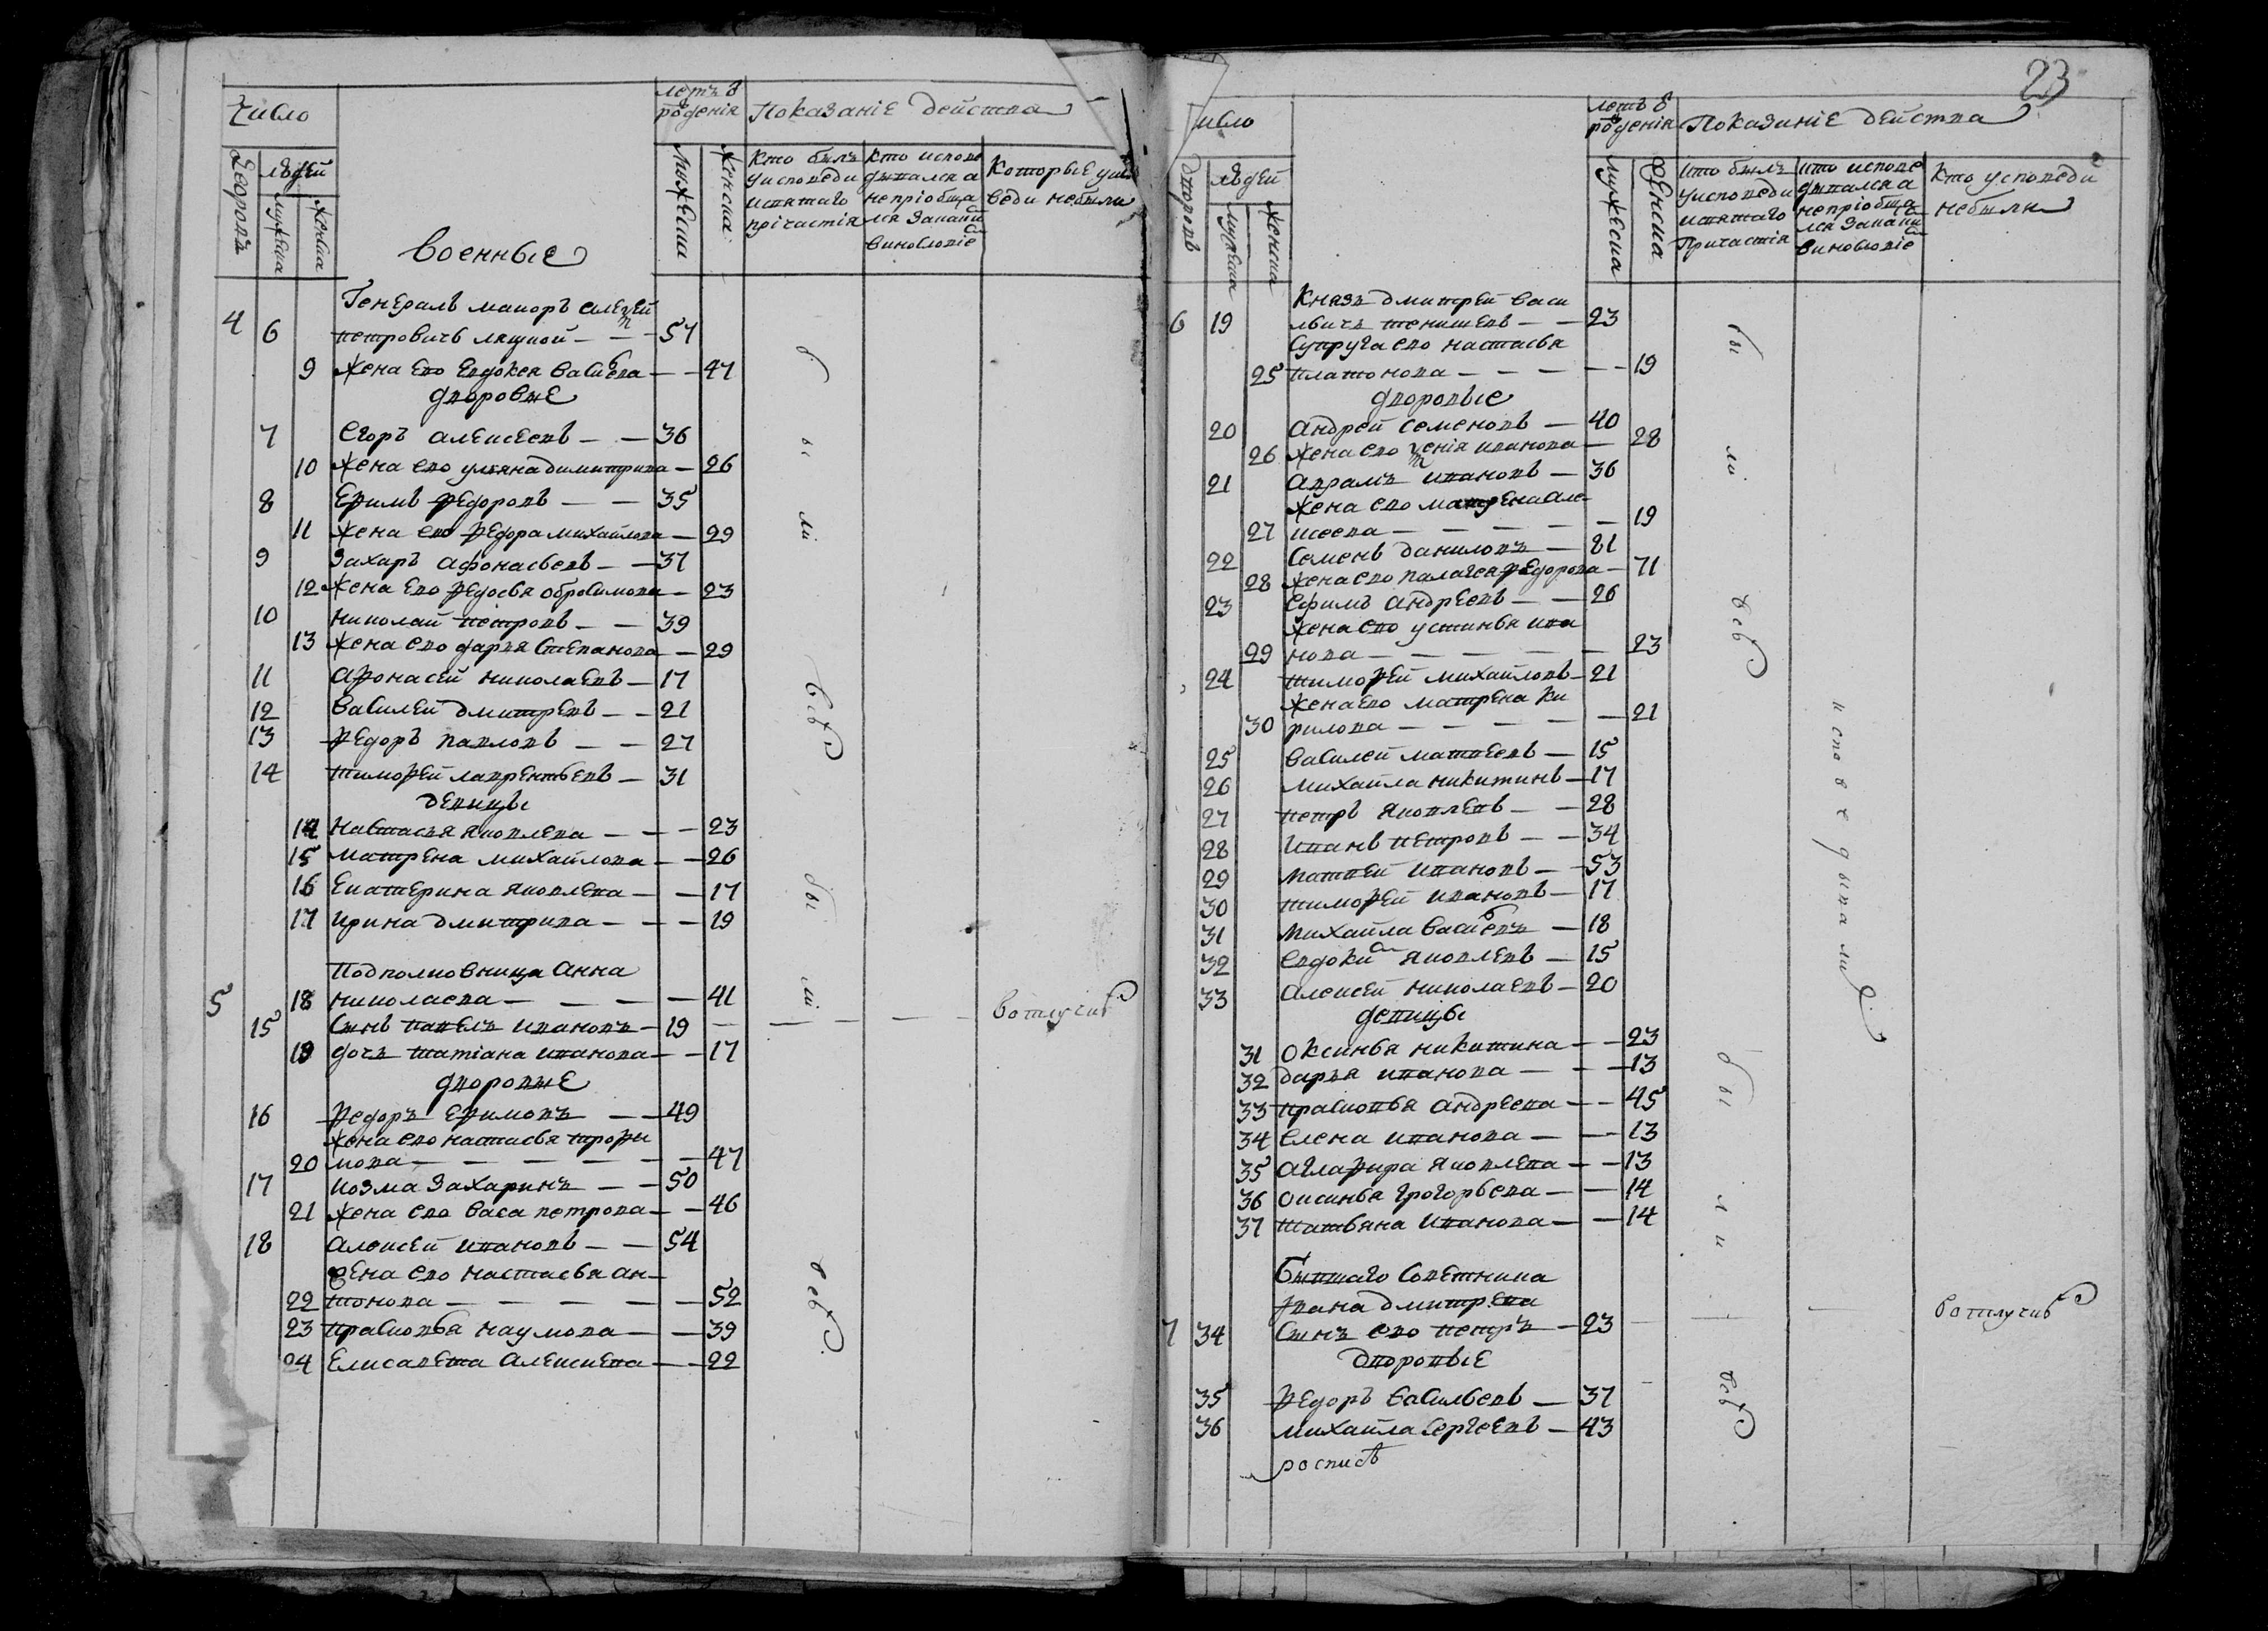 Число
лѣтъ ѿ рожденія
Показаніе действа
дворовъ
людей
мужеска
женска
военные
мужеска
женска
Кто былъ у исповеди и святаго причастія
кто исповедывался а не пріобщался за каким виновствіе
Которые у исповеди не были
Генералъ маиоръ алеѯей
4 6 петровичь — — 57
9 жена его евдокея васильева — — 47
дворовые
7 егоръ алексеевъ — — 36
10 жена его ульяна димитриева — 26
8 ефимъ федоровъ — — 35
11 жена его федора михайлова — 29
9 захаръ афонасьевъ — — 37
12 жена его федосья — 23
10 николай петровъ — — 39
13 жена его дарья степанова — 29
11 афонасей николаевъ — 17
12 василей дмитревъ — — 21
13 федоръ павловъ — — 27
14 тимофей лаврентьевъ — 31
девицы
14 настасья яковлева — — — 23
15 матрена михайлова — — 26
16 екатерина яковлева — — 17
17 ирина дмитрива — — — 19
были всѣ
Подполковница анна
5 18 николаева — — — — 41
15 сынъ павелъ ивановъ — 19 — — — — — в отлучкѣ
19 дочь татіана иванова — — 17
дворовые
16 федоръ ефимовъ — — 49
жена его настасья трофи
20 мова — — — — — — 47
17 козма захаринъ — — 50
21 жена его васа петрова — — 46
18 алексей ивановъ — — 54
жена его настасья ан-
22 тонова — — — — — 52
23 прасковья наумова — — 39
24 елисавета алексиева — — 22
были всѣ
23
число
лѣтъ ѿ рожденія
Показаніе действа
дворовъ
людей
мужеска
женска
мужеска
женска
кто былъ у исповеди и святаго причастія
кто исповедывался а не пріобщался за каким виновствіе
кто у исповеди не были
князь дмитрей васи
6 19 львичь тенишевъ — — 23
супруга его настасья
25 платонова — — — — — 19
дворовые
20 андрей семеновъ — 40
26 жена его иванова — 28
21 аврамъ ивановъ — 36
жена его матрена але-
27 ксеева — — — — — 19
22 семенъ даниловъ — 81
28 жена его палагея федорова — 71
23 ефимъ андреевъ — — 26
жена его устинья ива
29 нова — — — — — 23
24 тимофей михайловъ — 21
жена его матрена ки
30 рилова — — — — — 21
25 василей матвеевъ — 15
26 михайла никитинъ — 17
27 петръ яковлевъ — — 28
28 иванъ петровъ — — 34
29 матвей ивановъ — 53
30 тимофей ивановъ — 17
31 михайла васильевъ — 18
32 евдоким яковлевъ — 15
33 алексей николаевъ — 20
девицы
31 оксинья никитина — — 23
32 дарья иванова — — — 13
33 прасковья андреева — — 45
34 елена иванова — — — 13
35 аглафира яковлева — — 13
36 оксинья григорьева — — 14
37 татьяна иванова — — 14
были всѣ
исповедывали
были всѣ
бывшаго советника
ивана дмитрева
7 34 сынъ его петръ — 23 — — — в отлучкѣ
дворовые
35 федоръ васильевъ — 37
36 михайла сергеевъ — 43
роспись